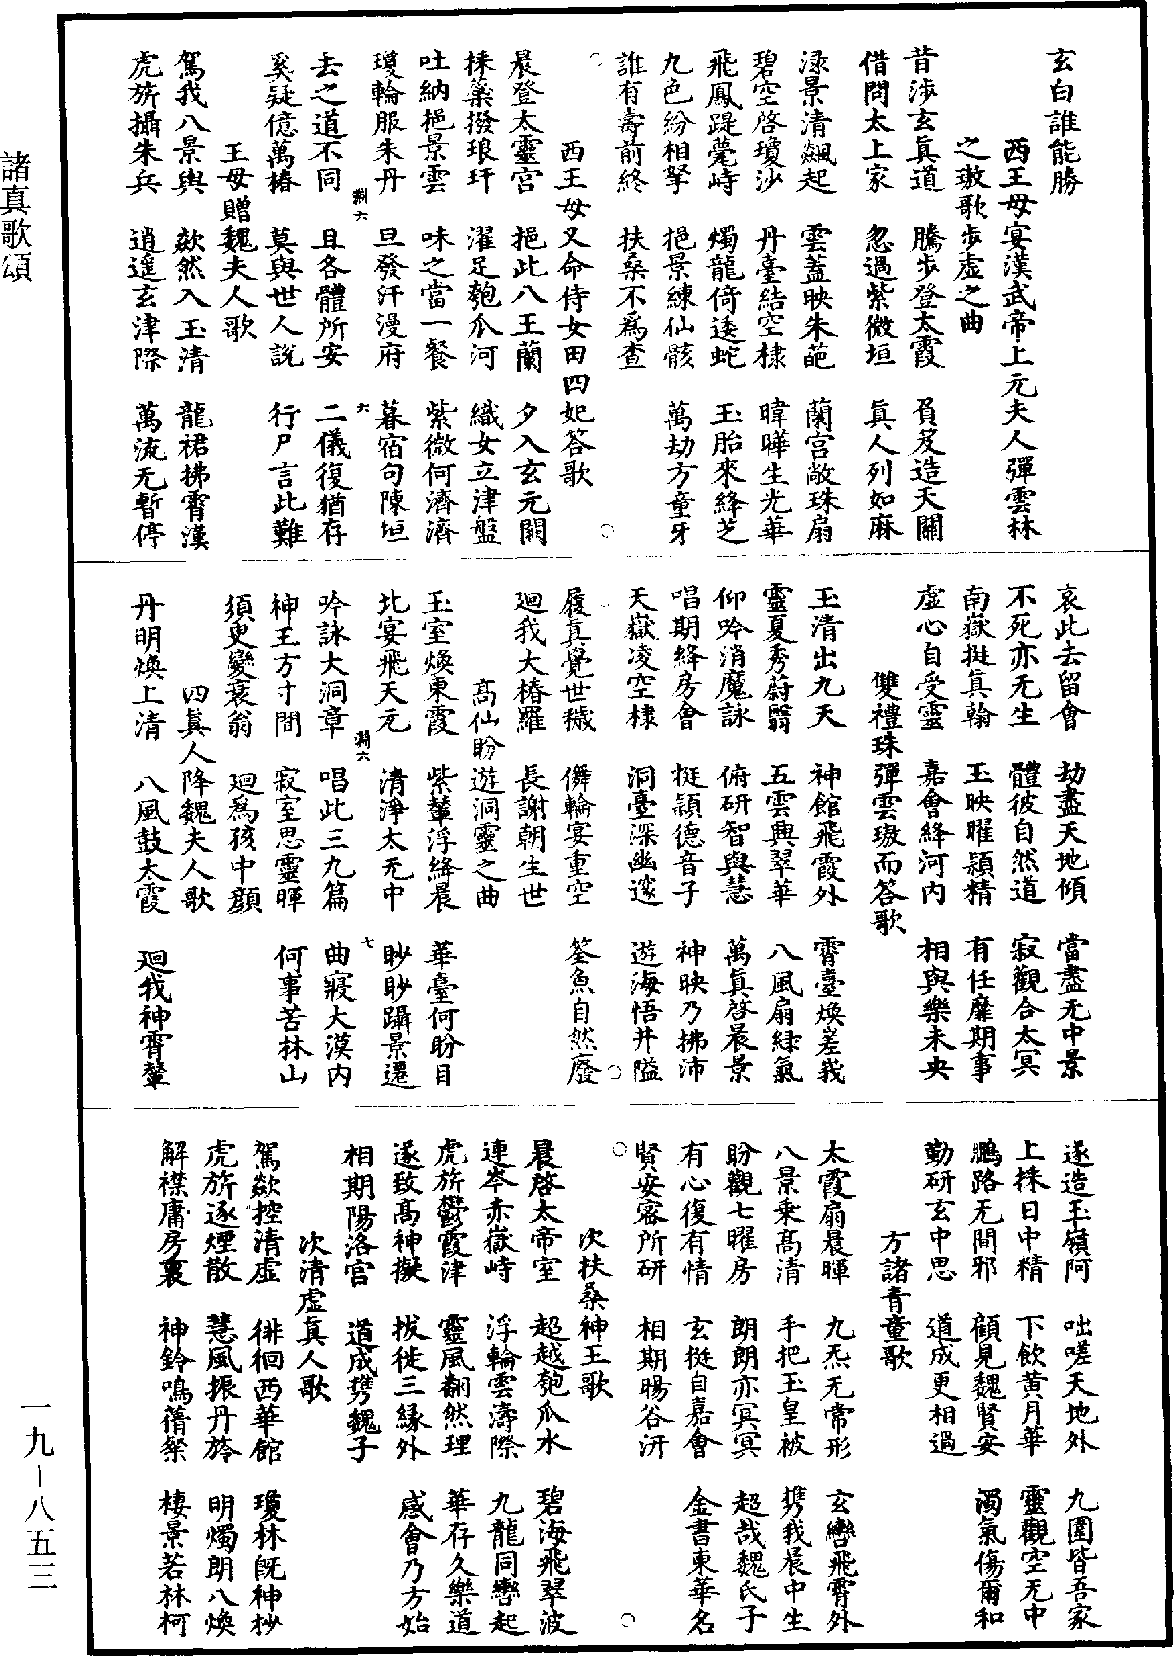 玄白誰能勝
西王母宴漢武帝上元夫人彈雲林
之璈歌步虛之曲
昔涉玄真道　騰步登太霞　負笈造天關
借問太上家　忽過紫微垣　真人列如麻
渌景清飈起　雲蓋映朱葩　蘭宮敞珠扇
碧空啓瓊沙　丹臺結空棣　暐曄生光華
飛鳳踶甍峙　燭龍倚逶蛇　玉胎來絳芝
九色紛相拏　挹景練仙骸　萬劫方童牙
誰有壽前終　扶桑不爲查
西王母又命侍女田四妃答歌
晨登太靈宮　挹此八王蘭　夕入玄元闕
採蘂掇琅玕　濯足匏瓜河　織女立津盤
吐納挹景雲　味之當一餐　紫微何濟濟
瓊輪服朱丹　旦發汗漫府　暮宿句陳垣
淵六
六
去之道不同　且各體所安　二儀復猶存
奚疑億萬椿　莫與世人說　行尸言此難
王母贈魏夫人歌
駕我八景輿　欻然入玉清　龍裙拂霄漢
虎旂攝朱兵　逍遥玄津際　萬流无暫停
哀此去留會　劫盡天地傾　當盡无中景
不死亦无生　體彼自然道　寂觀合太冥
南嶽挺真翰　玉映曜頴精　有任靡期事
虛心自受靈　嘉會絳河內　相與樂未央
雙禮珠彈雲璈而答歌
玉清出九天　神館飛霞外　霄臺煥嵳峩
靈夏秀蔚翳　五雲興翠華　八風扇緑氣
仰吟消魔詠　俯研智與慧　萬真啓晨景
唱期絳房會　挺頴德音子　神映乃拂沛
天嶽凌空棣　洞臺深幽邃　遊海悟井隘
履真覺世穢　儛輪宴重空　筌魚自然廢
廻我大椿羅　長謝朝生世
高仙盼遊洞靈之曲
玉室煥東霞　紫輦浮絳晨　華臺何盼目
北宴飛天元　清淨太无中　眇眇躡景遷
淵六
七
吟詠大洞章　唱此三九篇　曲寢大漠內
神王方寸間　寂室思靈暉　何事苦林山
須臾變衰翁　廻爲孩中顏
四真人降魏夫人歌
丹明煥上清　八風鼓太霞　廻我神霄輦
遂造玉嶺阿　咄嗟天地外　九圍皆吾家
上採日中精　下飲黃月華　靈觀空无中
鵬路无間邪　顧見魏賢安　濁氣傷爾和
勤研玄中思　道成更相過
方諸青童歌
太霞扇晨暉　九炁无常形　玄轡飛霄外
八景乘高清　手把玉皇被　携我晨中生
盼觀七曜房　朗朗亦冥冥　超哉魏氏子
有心復有情　玄挺自嘉會　金書東華名
賢安密所研　相期暘谷汧
次扶桑神王歌
晨啓太帝室　超越匏瓜水　碧海飛翠波
連岑赤嶽峙　浮輪雲濤際　九龍同轡起
虎旂鬱霞津　靈風翻然理　華存久樂道
遂致高神擬　拔徙三緣外　感會乃方始
相期陽洛宮　道成携魏子
次清虛真人歌
駕欻控清虛　徘徊西華館　瓊林旣神杪
虎旂逐煙散　慧風振丹旍　明燭朗八煥
解襟庸房裏　神鈴鳴蒨粲　棲景若林柯
諸真歌頌
一九—八五三